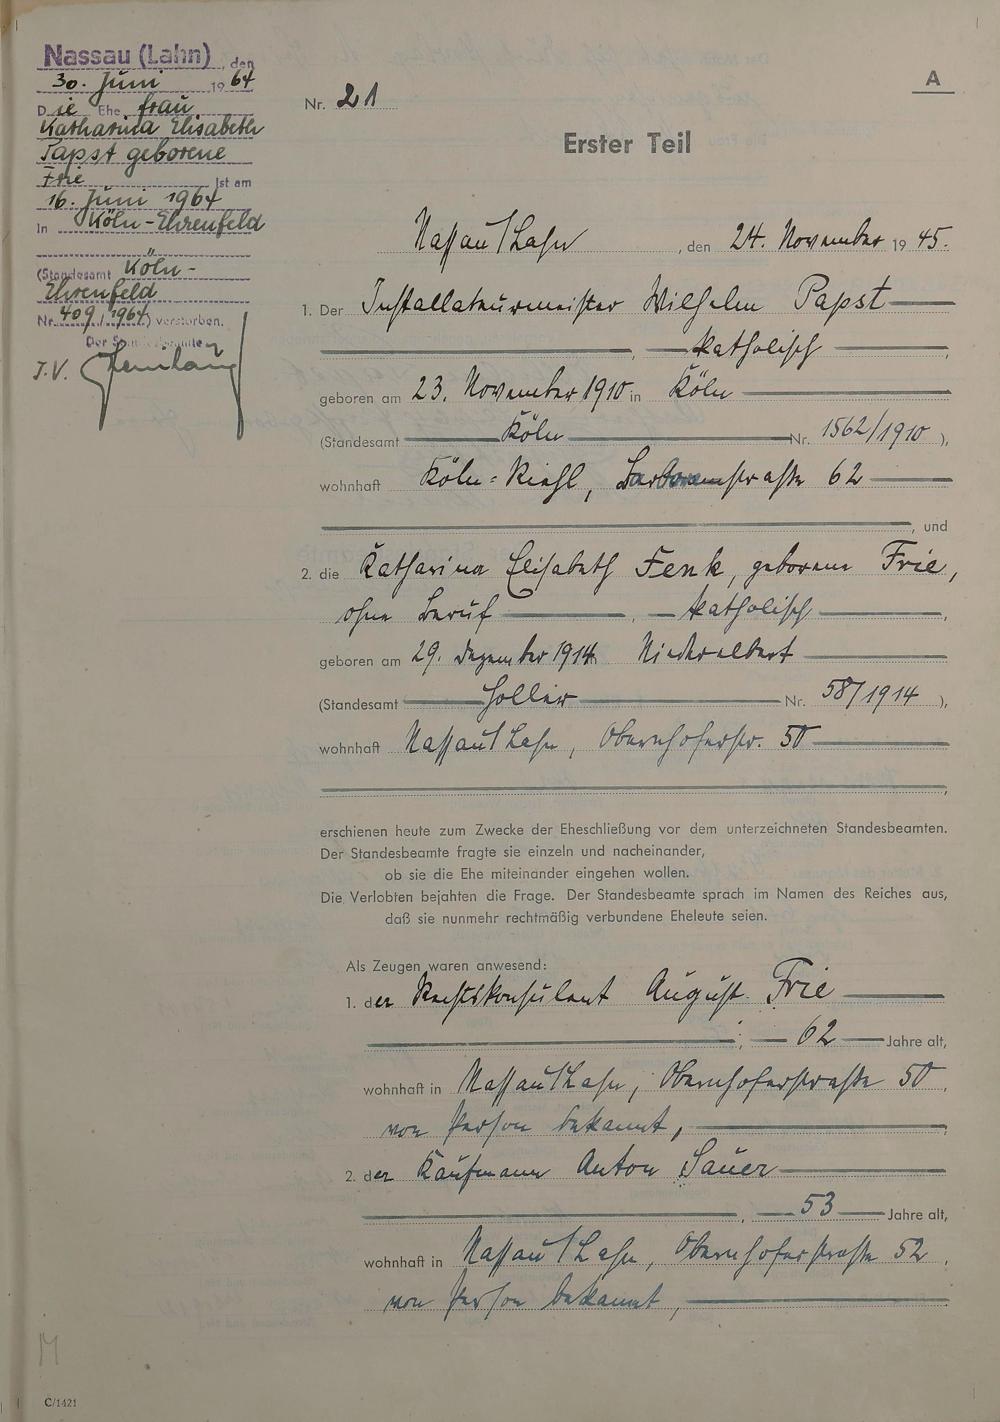 Nassau (Lahn), den
30. Juni 1964
Die Ehefrau
Katharina Elisabeth
Papst geborene
Frie ist am
16. Juni 1964
in Köln-Ehrenfeld
(Standesamt Köln-
Ehrenfeld
Nr. 409/1964) verstorben.
Der Standesbeamte
J.V.
A
Nr. 21
Erster Teil
Nassau/Lahn, den 24. November 1945.
1. Der Installateurmeister Wilhelm Papst
, katholisch,
geboren am 23. November 1910 in Köln
(Standesamt Köln Nr. 1562/1910),
wohnhaft Köln-Riehl, Barbarastraße 62
, und
2. die Katharina Elisabeth Fenk, geborene Frie,
ohne Beruf, katholisch,
geboren am 29. Dezember 1914 Niederelbert
(Standesamt Holler Nr. 58/1914),
wohnhaft Nassau/Lahn, Obernhoferstr. 50
,
erschienen heute zum Zwecke der Eheschließung vor dem unterzeichneten Standesbeamten.
Der Standesbeamte fragte sie einzeln und nacheinander,
ob sie die Ehe miteinander eingehen wollen.
Die Verlobten bejahten die Frage. Der Standesbeamte sprach im Namen des Reiches aus,
daß sie nunmehr rechtmäßig verbundene Eheleute seien.
Als Zeugen waren anwesend:
1. der Rechtskonsulent August Frie
, 62 Jahre alt,
wohnhaft in Nassau/Lahn, Obernhoferstraße 50,
von Person bekannt,
2. der Kaufmann Anton Sauer
, 53 Jahre alt,
wohnhaft in Nassau/Lahn, Obernhoferstraße 52,
von Person bekannt,
M
C/1421